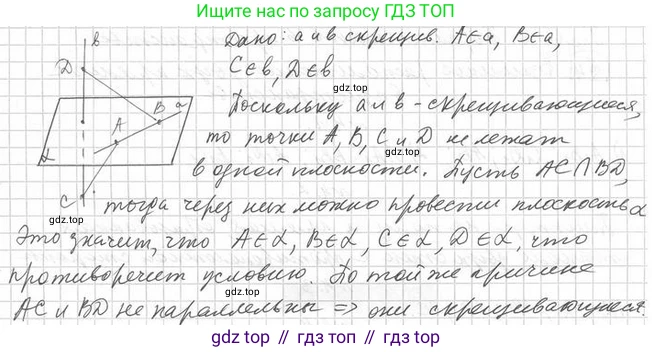 Ищите нас по запросу ГДЗ ТОП
Дано: a и b скрещив. A∈a, B∈a,
C∈b, D∈b
gdz.top
Поскольку a и b - скрещивающиеся,
то точки A, B, C и D не лежат
в одной плоскости. Пусть AC∩BD,
gdz.top
тогда через них можно провести плоскость α
Это значит, что A∈α, B∈α, C∈α, D∈α, что
противоречит условию. По той же причине
AC и BD не параллельны ⇒ они скрещивающиеся.
b
D
B
a
A
α
C
gdz.top
gdz.top
gdz.top // gdz.top // gdz.top